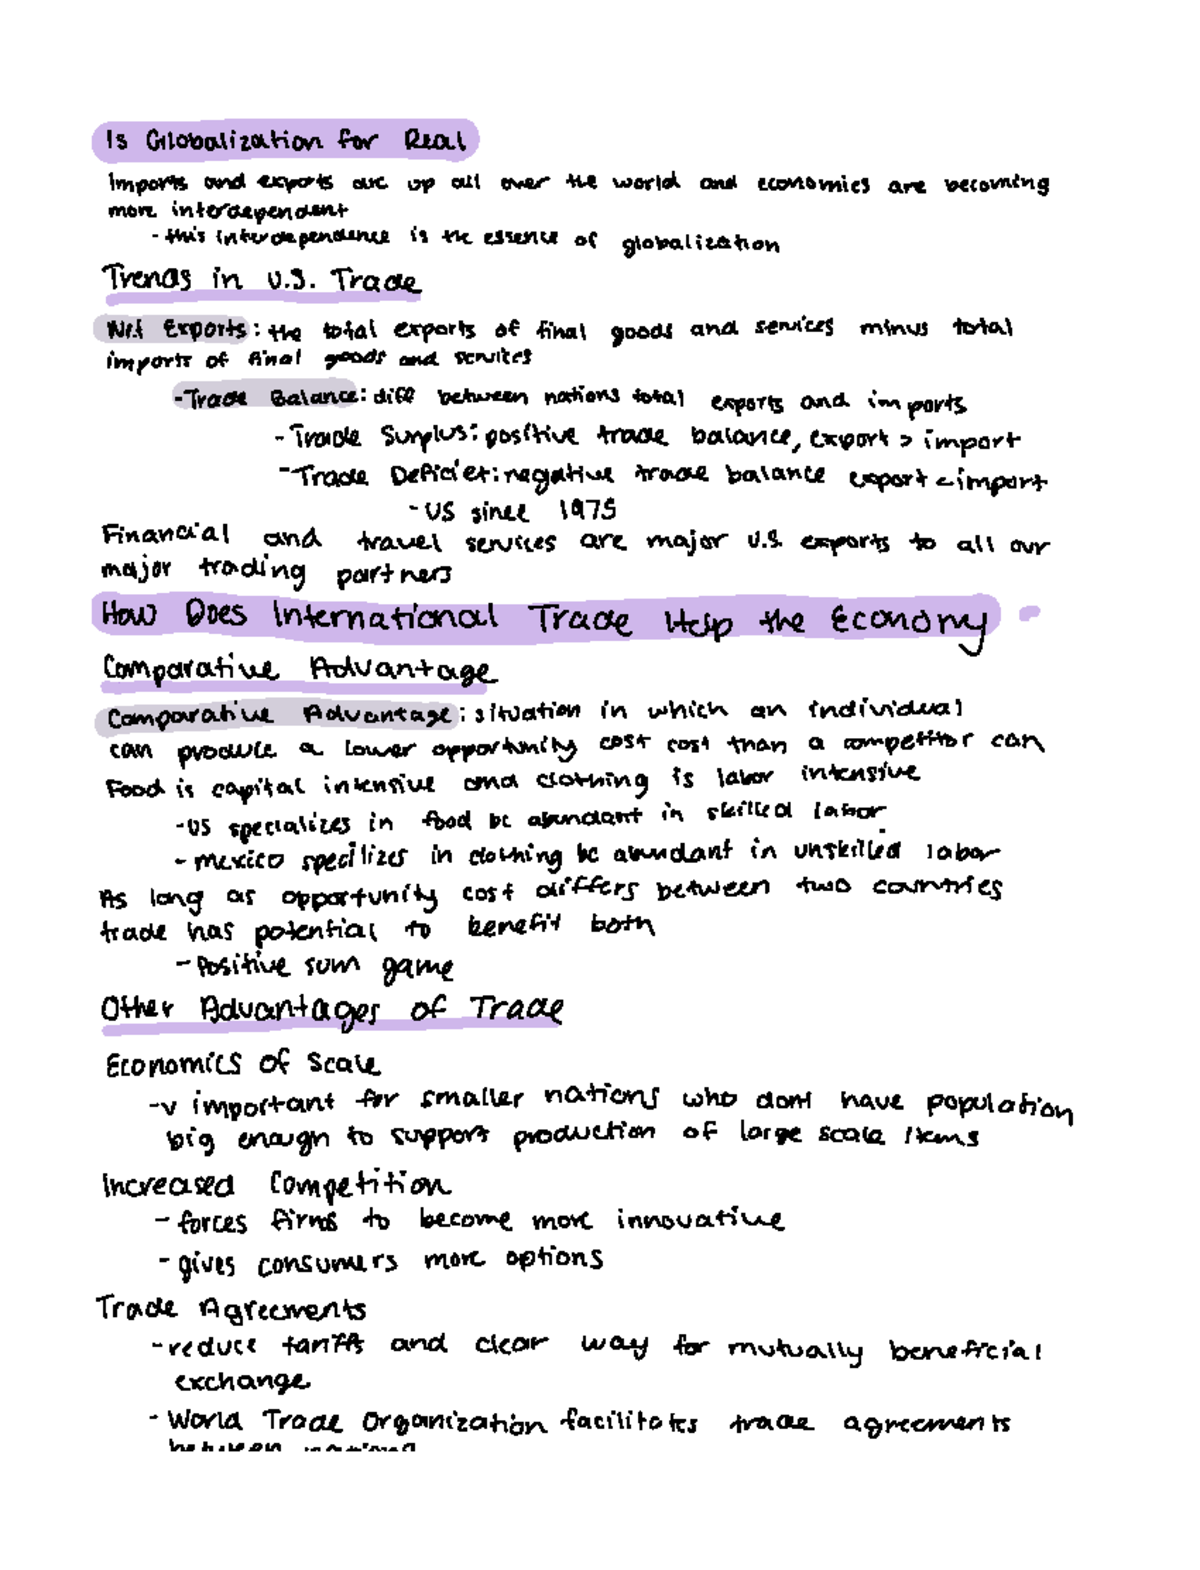 Is Globalization for Real
Imports and exports are up all over the world and economies are becoming
more interdependent
- this interdependence is the essence of globalization
Trends in U.S. Trade
Net Exports: the total exports of final goods and services minus total
imports of final goods and services
- Trade Balance: diff between nations total exports and imports
- Trade Surplus: positive trade balance, export > import
- Trade Deficiet: negative trade balance export < import
- US since 1975
Financial and travel services are major U.S. exports to all our
major trading partners
How Does International Trade Help the Economy
Comparative Advantage
Comparative Advantage: situation in which an individual
can produce a lower opportunity cost cost than a competitor can
Food is capital intensive and clothing is labor intensive
- US specializes in food bc abundant in skilled labor
- mexico specilizes in clothing bc abundant in unskilled labor
As long as opportunity cost differs between two countries
trade has potential to benefit both
- Positive sum game
Other Advantages of Trade
Economics of Scale
- v important for smaller nations who dont have population
big enough to support production of large scale items
Increased Competition
- forces firms to become more innovative
- gives consumers more options
Trade Agreements
- reduce tariffs and clear way for mutually beneficial
exchange
- World Trade Organization facilitates trade agreements
between